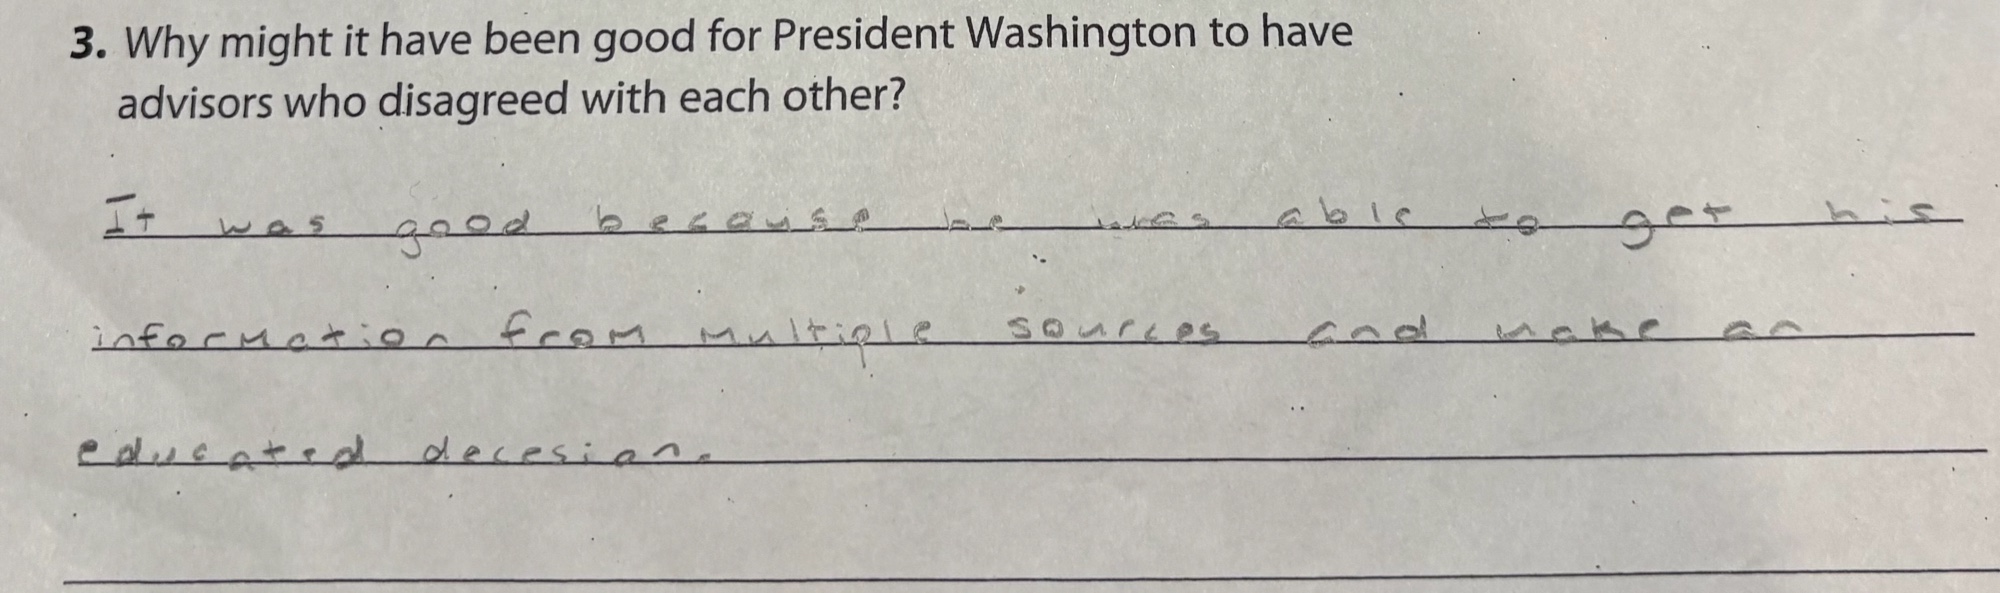 3. Why might it have been good for President Washington to have
advisors who disagreed with each other?
It was good because he was able to get his
information from multiple sources and make an
educated decesion.